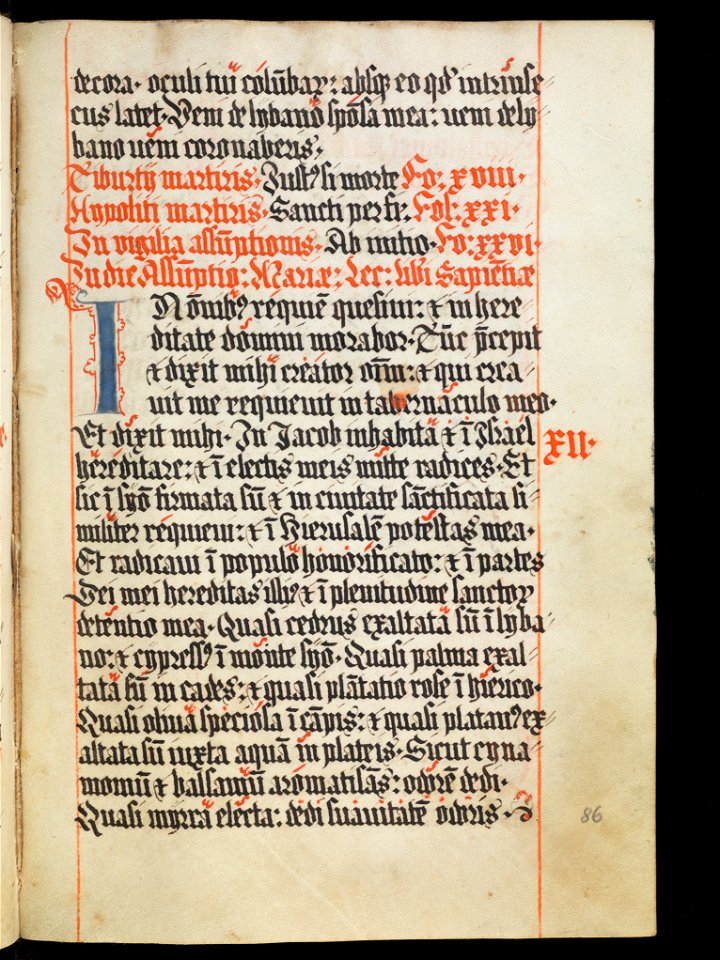 decora· oculi tui colūbaꝝ: absqꝫ eo qď intrinse
cus latet· Veni de lybano spōsa mea: ueni de ly
bano ueni coronaberis·
Tiburtij martiris· Justꝰ si morte Fo: xviii·
Hypoliti martiris· Sancti per fi: Fol: xxi·
In vigilia assūptionis· Ab initio· Fo: xxvi·
In die Assūptiō: Mariæ: Lec: libri Sapientiæ
IN ōnibꝰ requiē quesiui: ⁊ in here
ditate domini morabor· Tūc p̄cepit
⁊ dixit mihi creator oīm: ⁊ qui crea
uit me requieuit in tabernaculo meo·
Et dixit mihi· In Jacob inhabita ⁊ ī Israel
XII·
hereditare: ⁊ ī electis meis mitte radices· Et
sic ī syō firmata sū ⁊ in ciuitate sāctificata si
militer requieui: ⁊ ī Hierusalē potestas mea·
Et radicaui ī populo honorificato: ⁊ ī partes
Dei mei hereditas illiꝰ ⁊ ī plenitudine sanctoꝝ
detentio mea· Quasi cedrus exaltata sū ī lyba
no: ⁊ cypressꝰ ī monte syō· Quasi palma exal
tata sū in cades: ⁊ quasi plātatio rose ī hierico·
Quasi oliua speciosa ī cāpis: ⁊ quasi platanꝰ ex
altata sū iuxta aquā in plateis· Sicut cyna
momū ⁊ balsamū aromatisās: odorē dedi·
Quasi myrra electa: dedi suauitatē odoris·
86